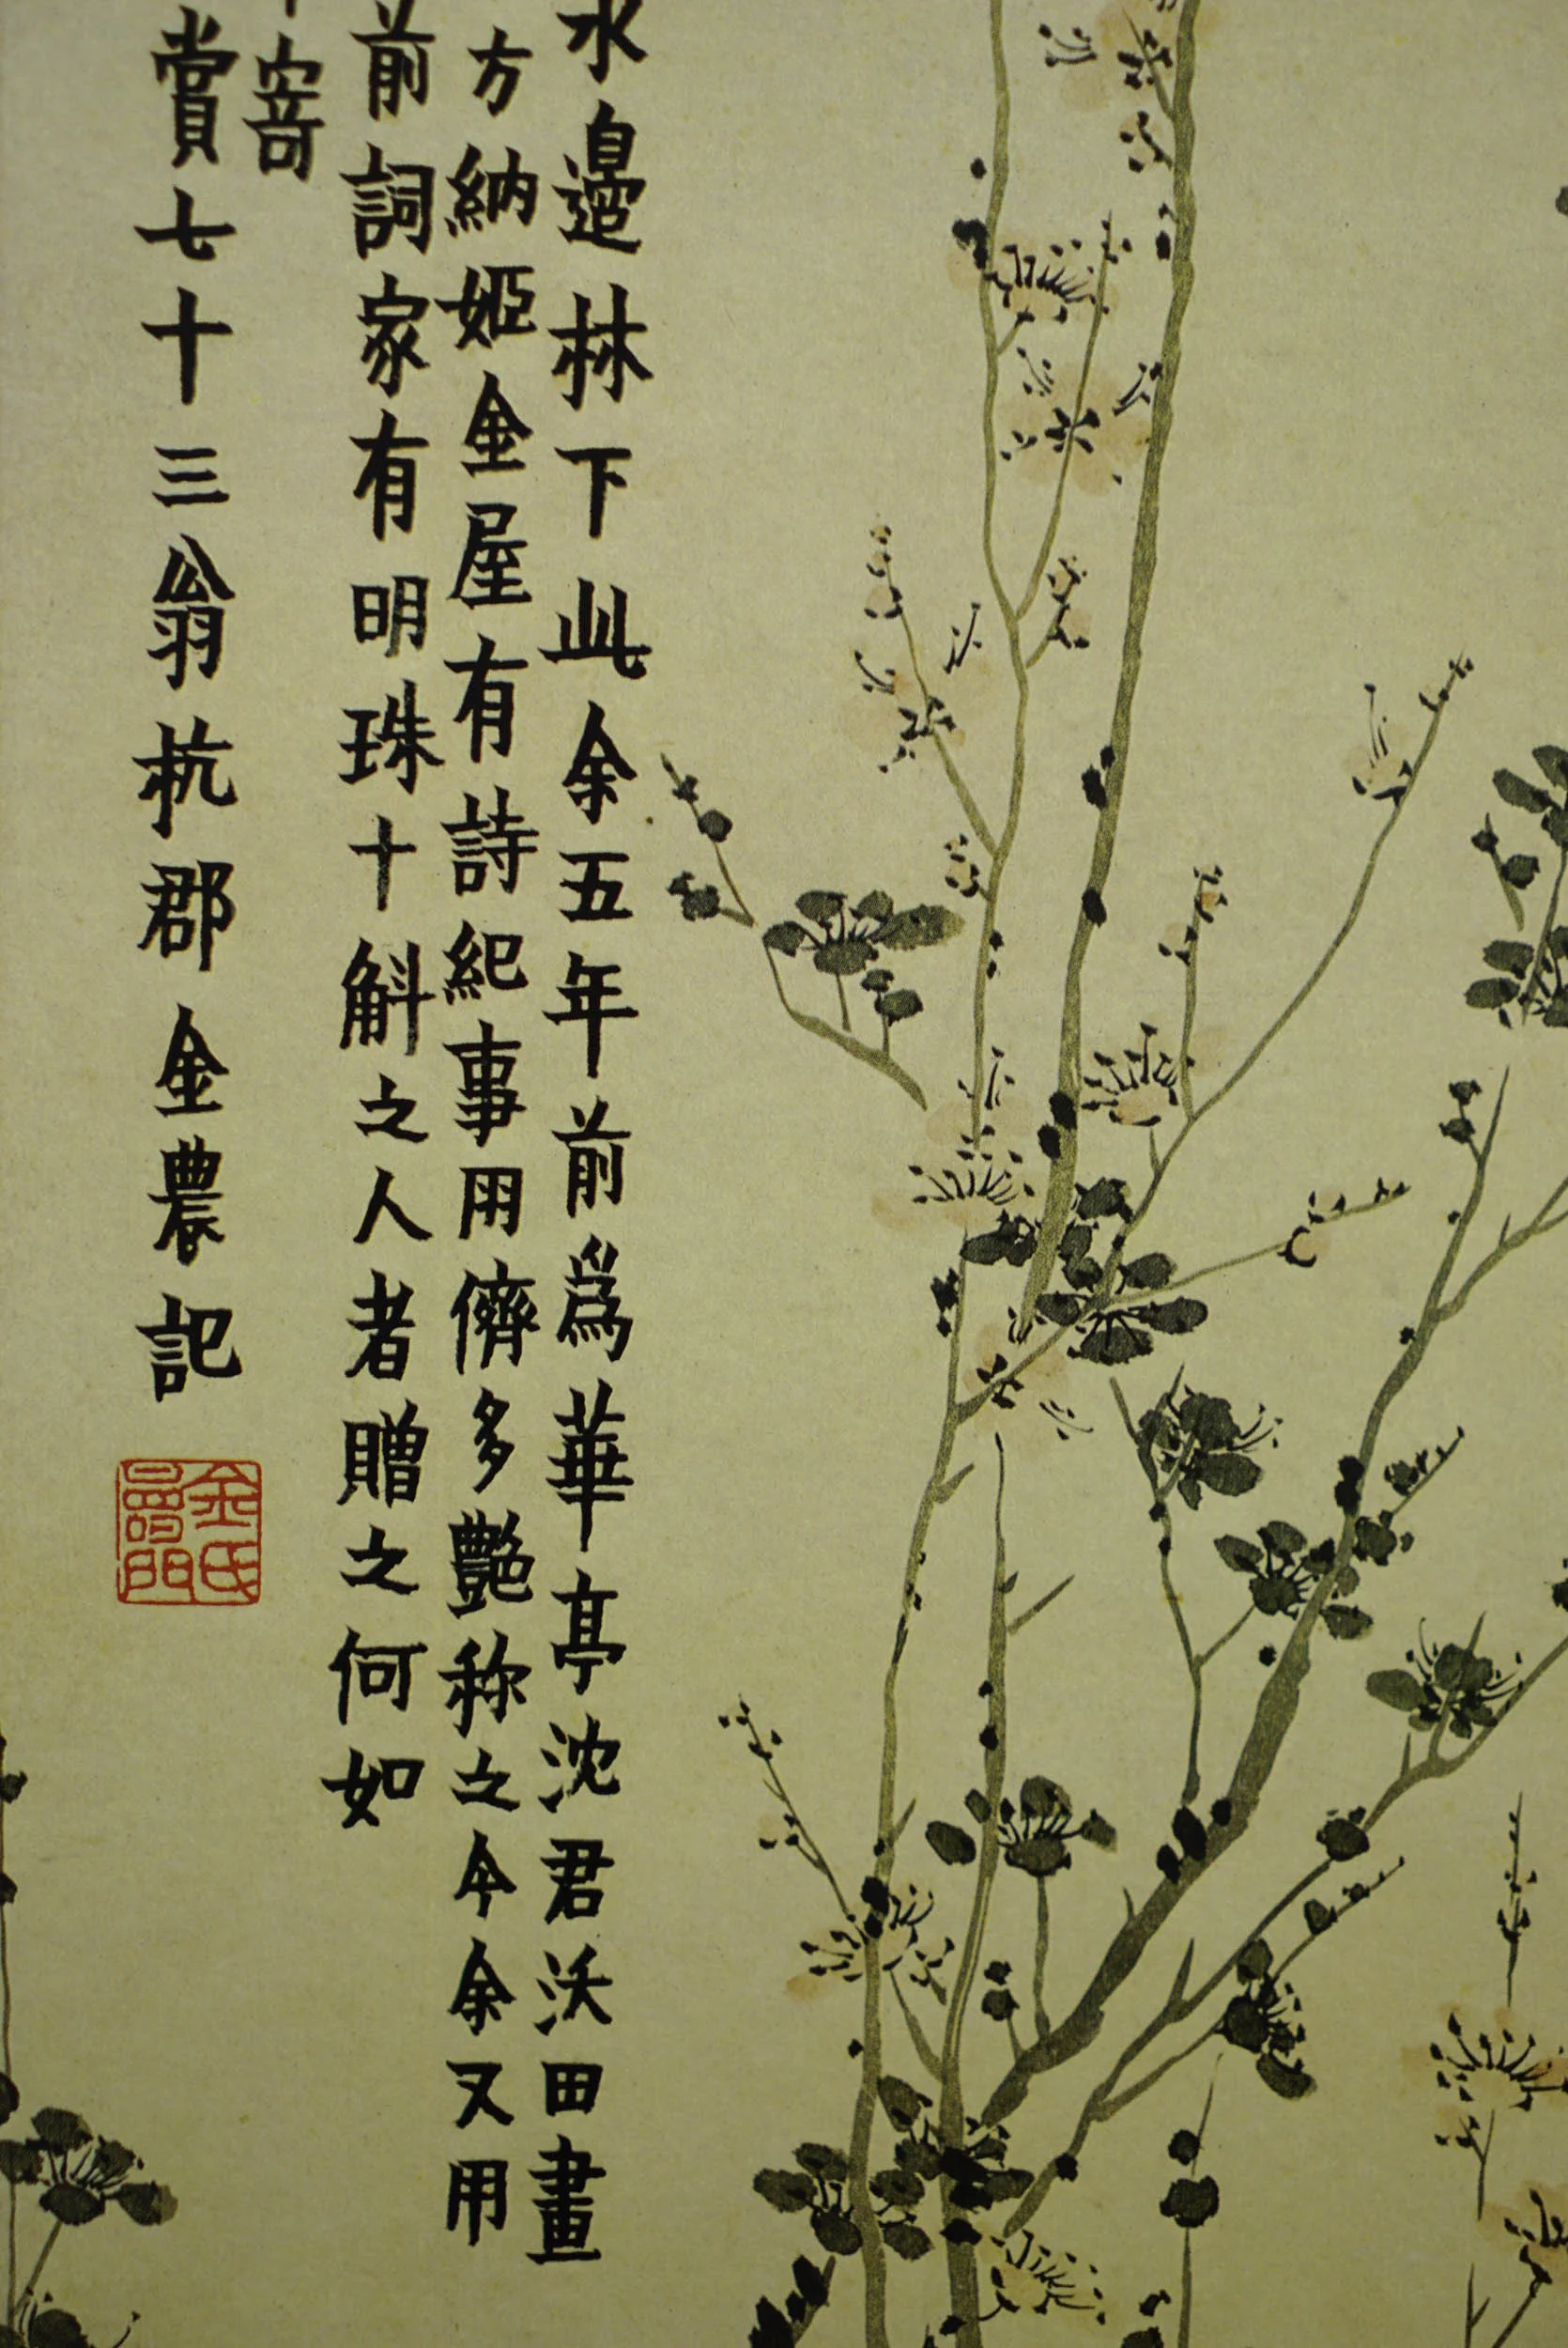 水邉林下此余五年前為華亭沈君沃田畫
方納姬金屋有詩紀事用儕多艷称之今余又用
前詞家有明珠十斛之人者贈之何如
寄
賞七十三翁杭郡金農記
金氏